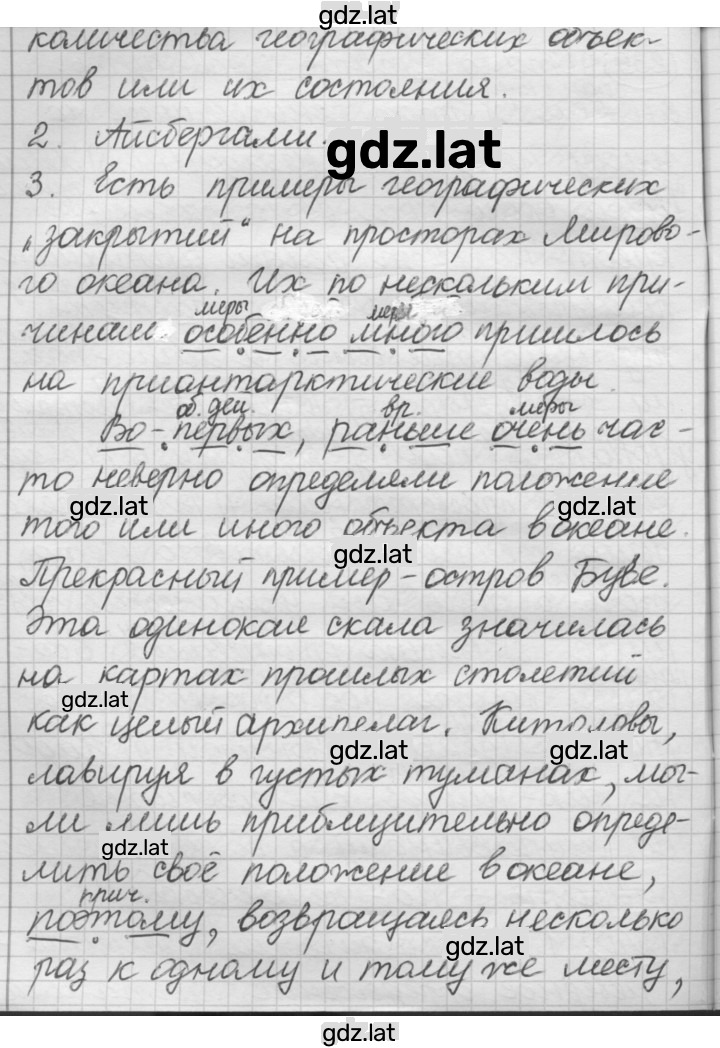 gdz.lat
количества географических объек-
тов или их состояния.
2. Айсбергами.
gdz.lat
3. Есть примеры географических
„закрытий“ на просторах Мирово-
го океана. Их по нескольким при-
меры меры
чинам особенно много пришлось
на приантарктические воды.
об. дей. вр. меры
Во-первых, раньше очень час-
то неверно определяли положение
gdz.lat gdz.lat
того или иного объекта в океане.
gdz.lat
Прекрасный пример - остров Буве.
Эта одинокая скала значилась
на картах прошлых столетий
gdz.lat
как целый архипелаг. Китоловы,
gdz.lat gdz.lat
лавируя в густых туманах, мог-
ли лишь приблизительно опреде-
gdz.lat
лить своё положение в океане,
прич.
поэтому, возвращаясь несколько
gdz.lat
раз к одному и тому же месту,
gdz.lat